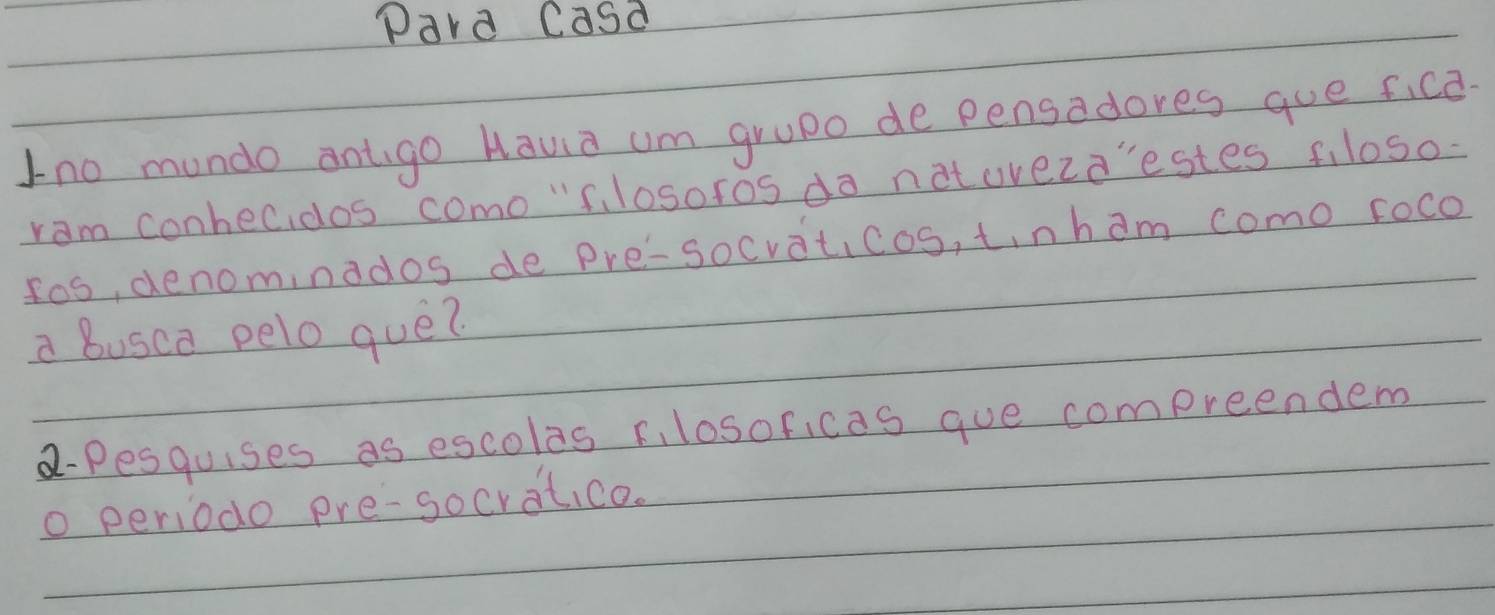 Para Casa
1-no mundo antigo Havia um grupo de pensadores que fica-
ram conhecidos como "filosofos da natureza" estes filoso-
fos, denominados de pré-socráticos, tinham como foco
a Busca pelo quê?
2-Pesquises as escolas filosoficas que compreendem
o período pré-socrático.